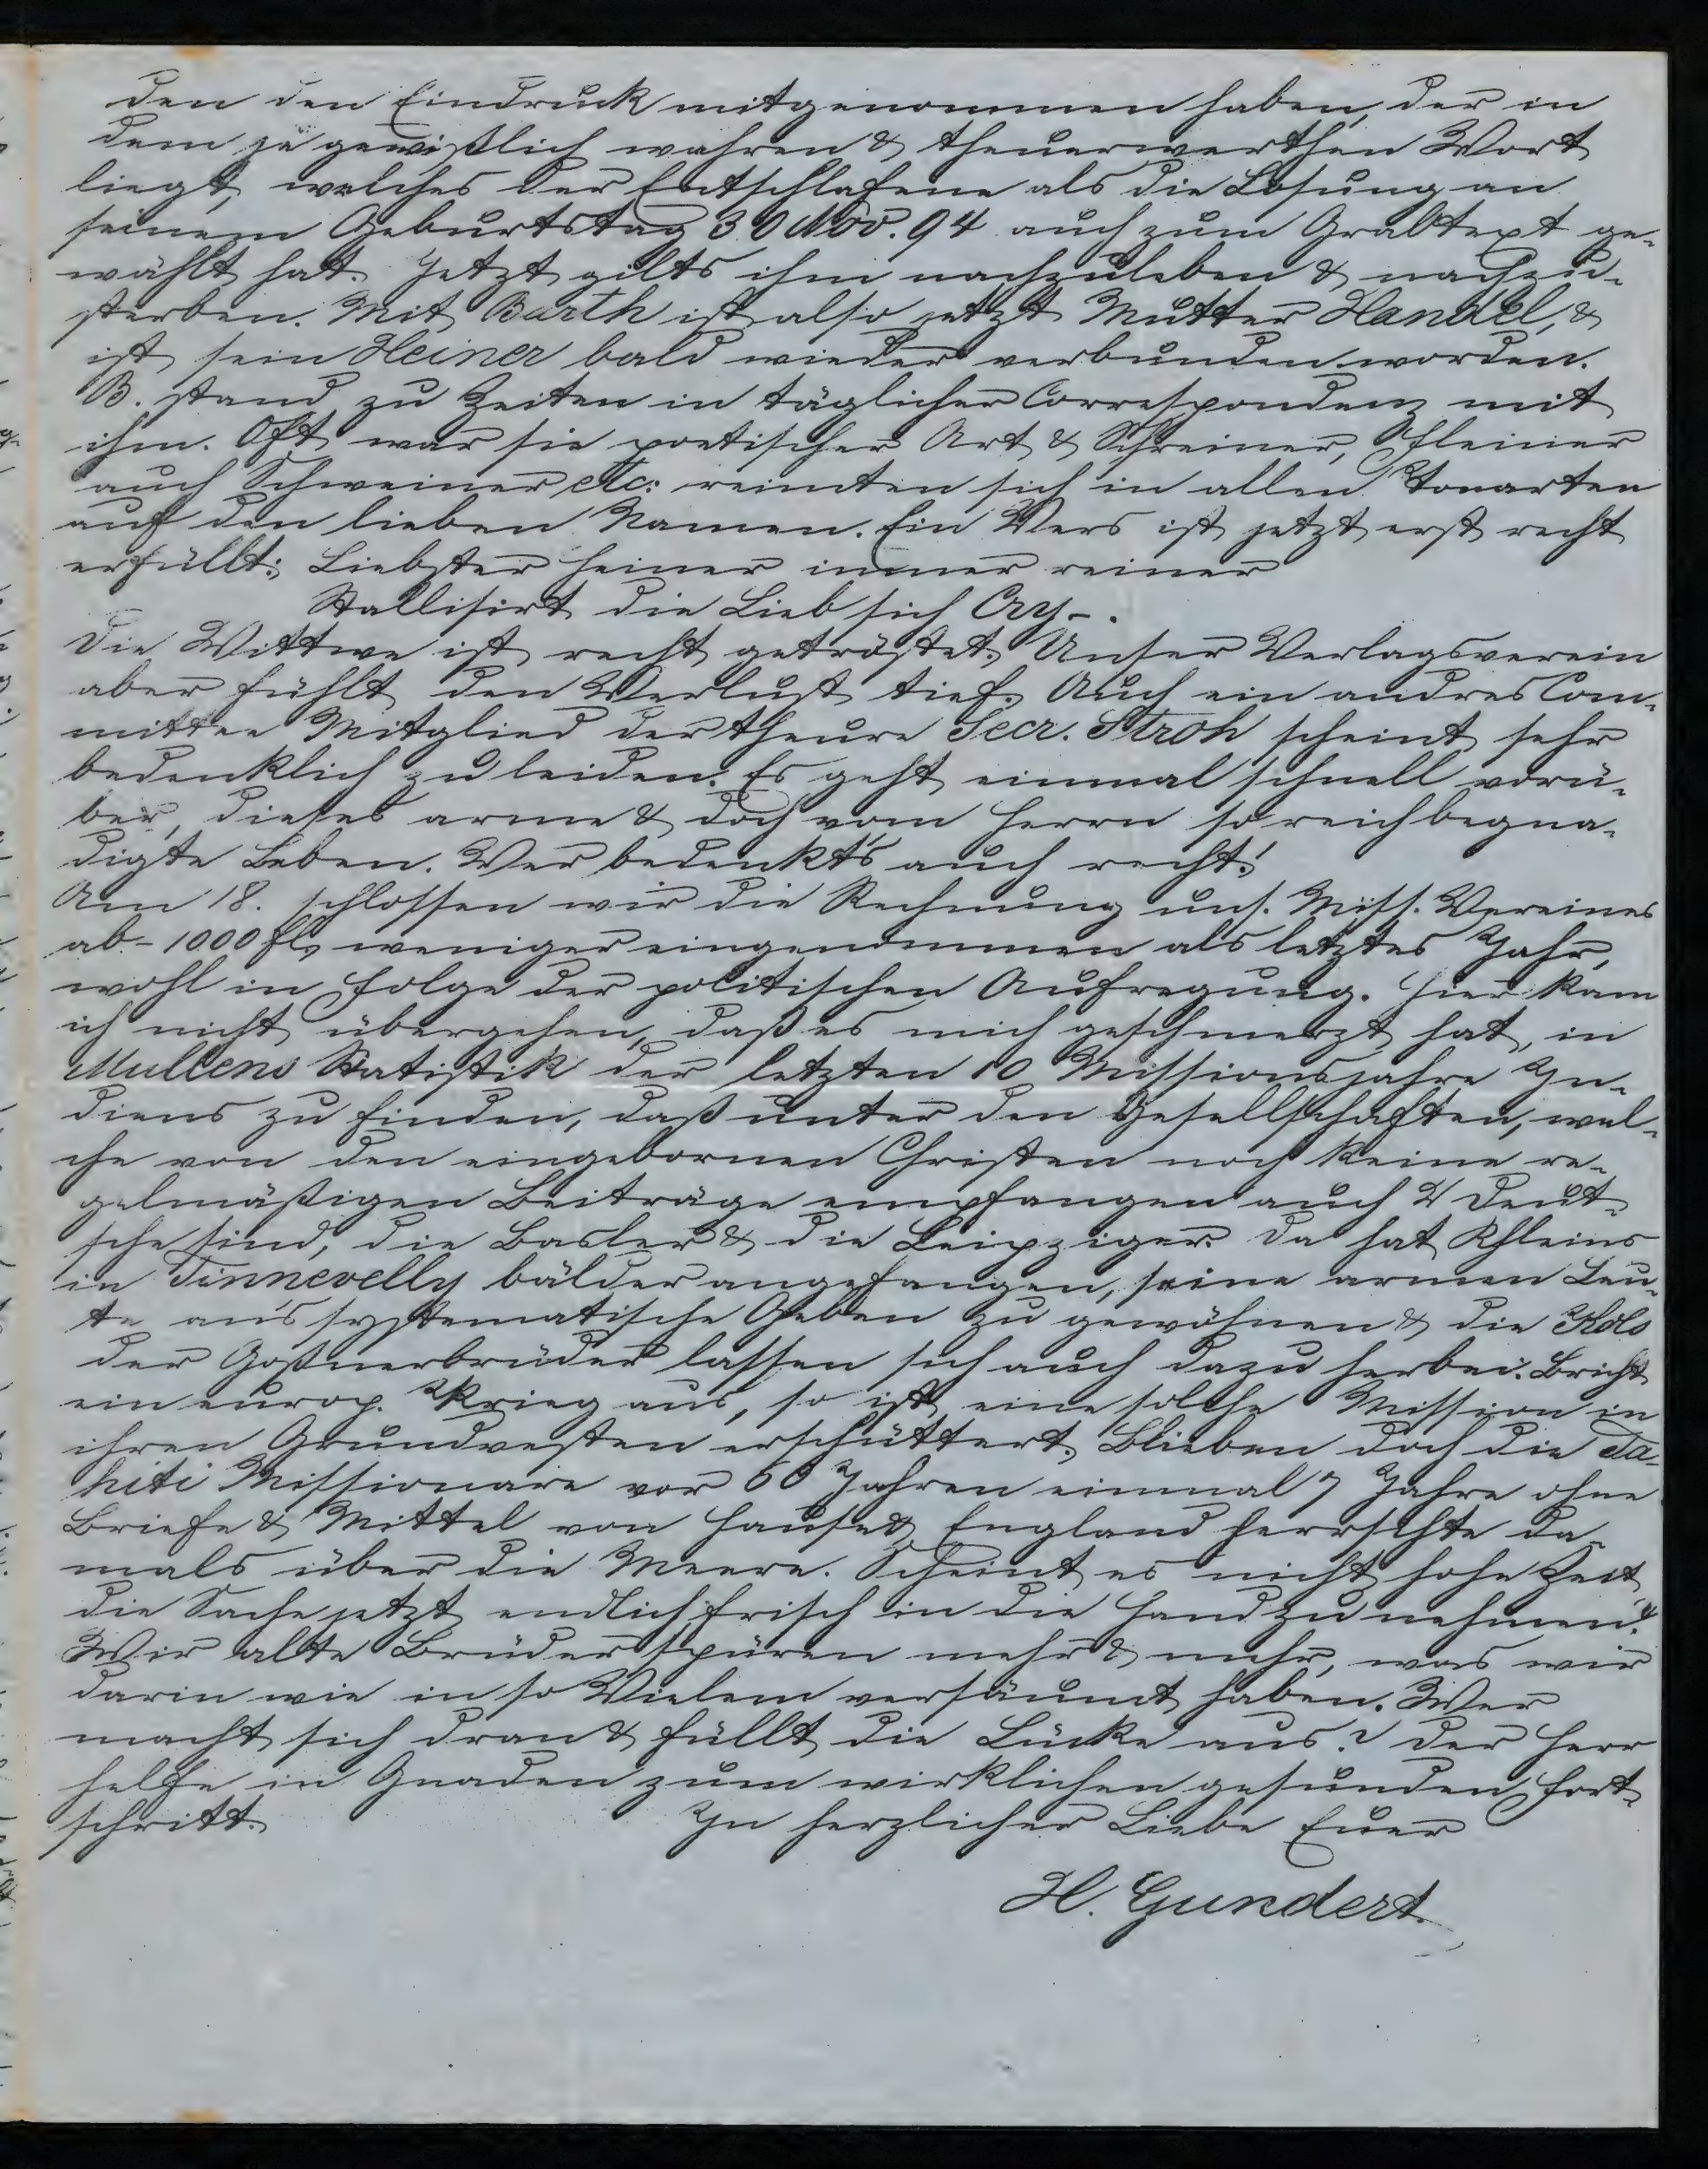 den den Eindruck mitgenommen haben, der in
dem je gewißlich wahren & theuerwerthen Wort
liegt, welches der Entschlafene als die Losung an
seinem Geburtstag 30 Nov. 94 auch zum Grabtext ge-
wählt hat. Jetzt gilts ihm nachzuleben & nachzu-
sterben. Mit Barth ist also jetzt Mutter Handel, &
ist sein Heiner bald wieder verbunden worden.
B. stand zu Zeiten in täglicher Correspondenz mit
ihm. Oft war sie poetischer Art & Schreiner,
auch Schweiner etc: reimten sich in allen Tonarten
auf den lieben Namen. Ein Vers ist jetzt erst recht
erfüllt: Liebster Heiner immer reiner
Stallisirt die Lieb sich Cry-.
Die Wittwe ist recht getröstet. Unser Verlagsverein
aber fühlt den Verlust tief. Auch ein andres Com-
mittee Mitglied der theure Secr. Stroh scheint sehr
bedenklich zu leiden. Es geht einmal schnell vorü-
ber, dieses arme & doch vom Herrn so reich begna-
digte Leben. Wer bedenkt's auch recht!
Am 18. schlossen wir die Rechnung uns. Miss. Vereines
ab - 1000 fl. weniger eingenommen als letztes Jahr,
wohl in Folge der politischen Aufregung. Hier kann
ich nicht übergehen, daß es mich geschmerzt hat, in
Mullens Statistik der letzten 10 Missionsjahre In-
diens zu finden, daß unter den Gesellschaften, wel-
che von den eingebornen Christen noch keine re-
gelmäßigen Beiträge empfangen auch 2 Deut-
sche sind, die Basler & die Leipziger. Da hat Rhenius
in Tinnevelly bälder angefangen, seine armen Leu-
te an's systematische Geben zu gewöhnen & die Kols
der Goßnerbrüder lassen sich auch dazu herbei. Bricht
ein europ. Krieg aus, so ist eine solche Mission in
ihren Grundvesten erschüttert. Blieben doch die Ta-
hiti Missionare vor 60 Jahren einmal 7 Jahre ohne
Briefe & Mittel von Hause & England herrschte da-
mals über die Meere. Scheint es nicht hohe Zeit,
die Sache jetzt endlich frisch in die Hand zu nehmen?
Wir alte Brüder spüren mehr & mehr, was wir
darin wie in so Vielem versäumt haben. Wer
macht sich dran & füllt die Lücke aus? Der Herr
helfe in Gnaden zum wirklichen gesunden Fort-
schritt. In herzlicher Liebe Euer
H. Gundert.